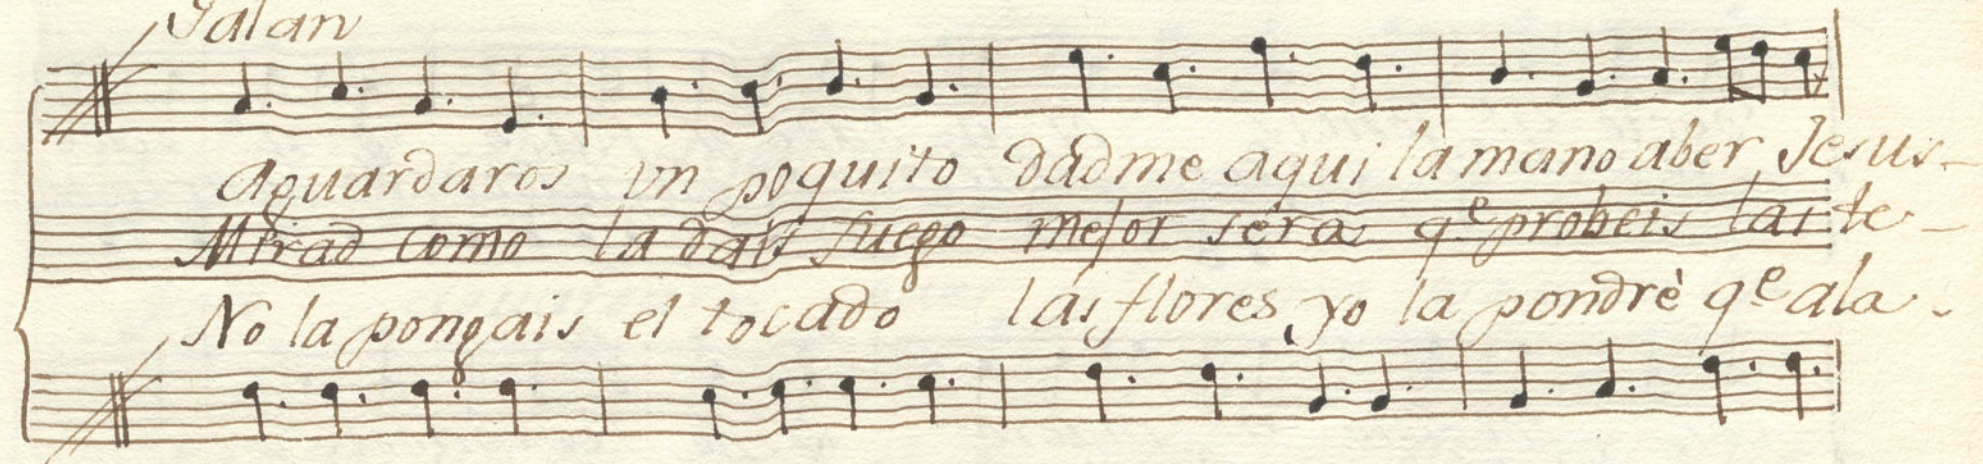 Galan
aguardaros un poquito dadme aqui la mano aber Jesus-
Mirad como la dais fuego mejor sera qe probeis las te-
No la pongais el tocado las flores yo la pondrè qe ala-